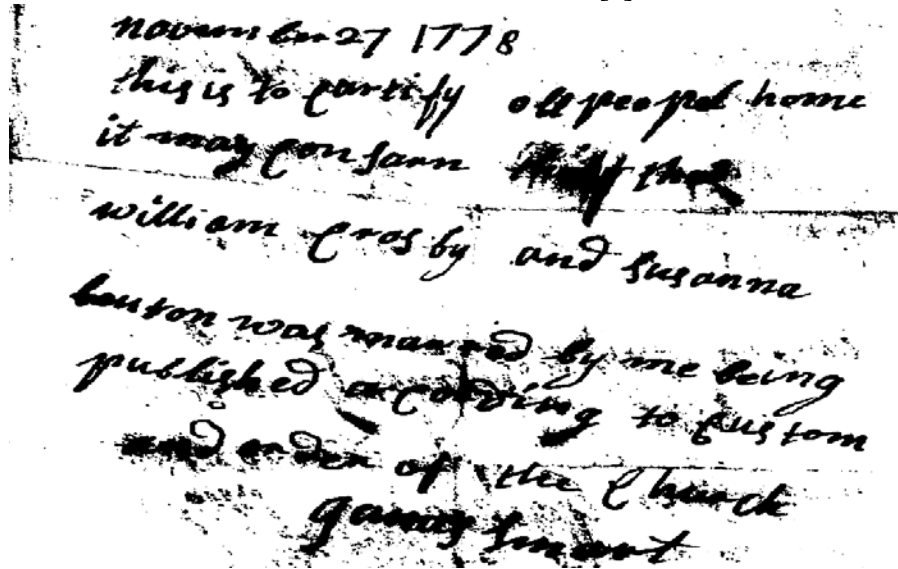 november 27 1778
this is to cartify all peopel home
it may consarn that
william crosby and susanna
bouton was marred by me being
published acording to custom
and order of the Church
James Smart